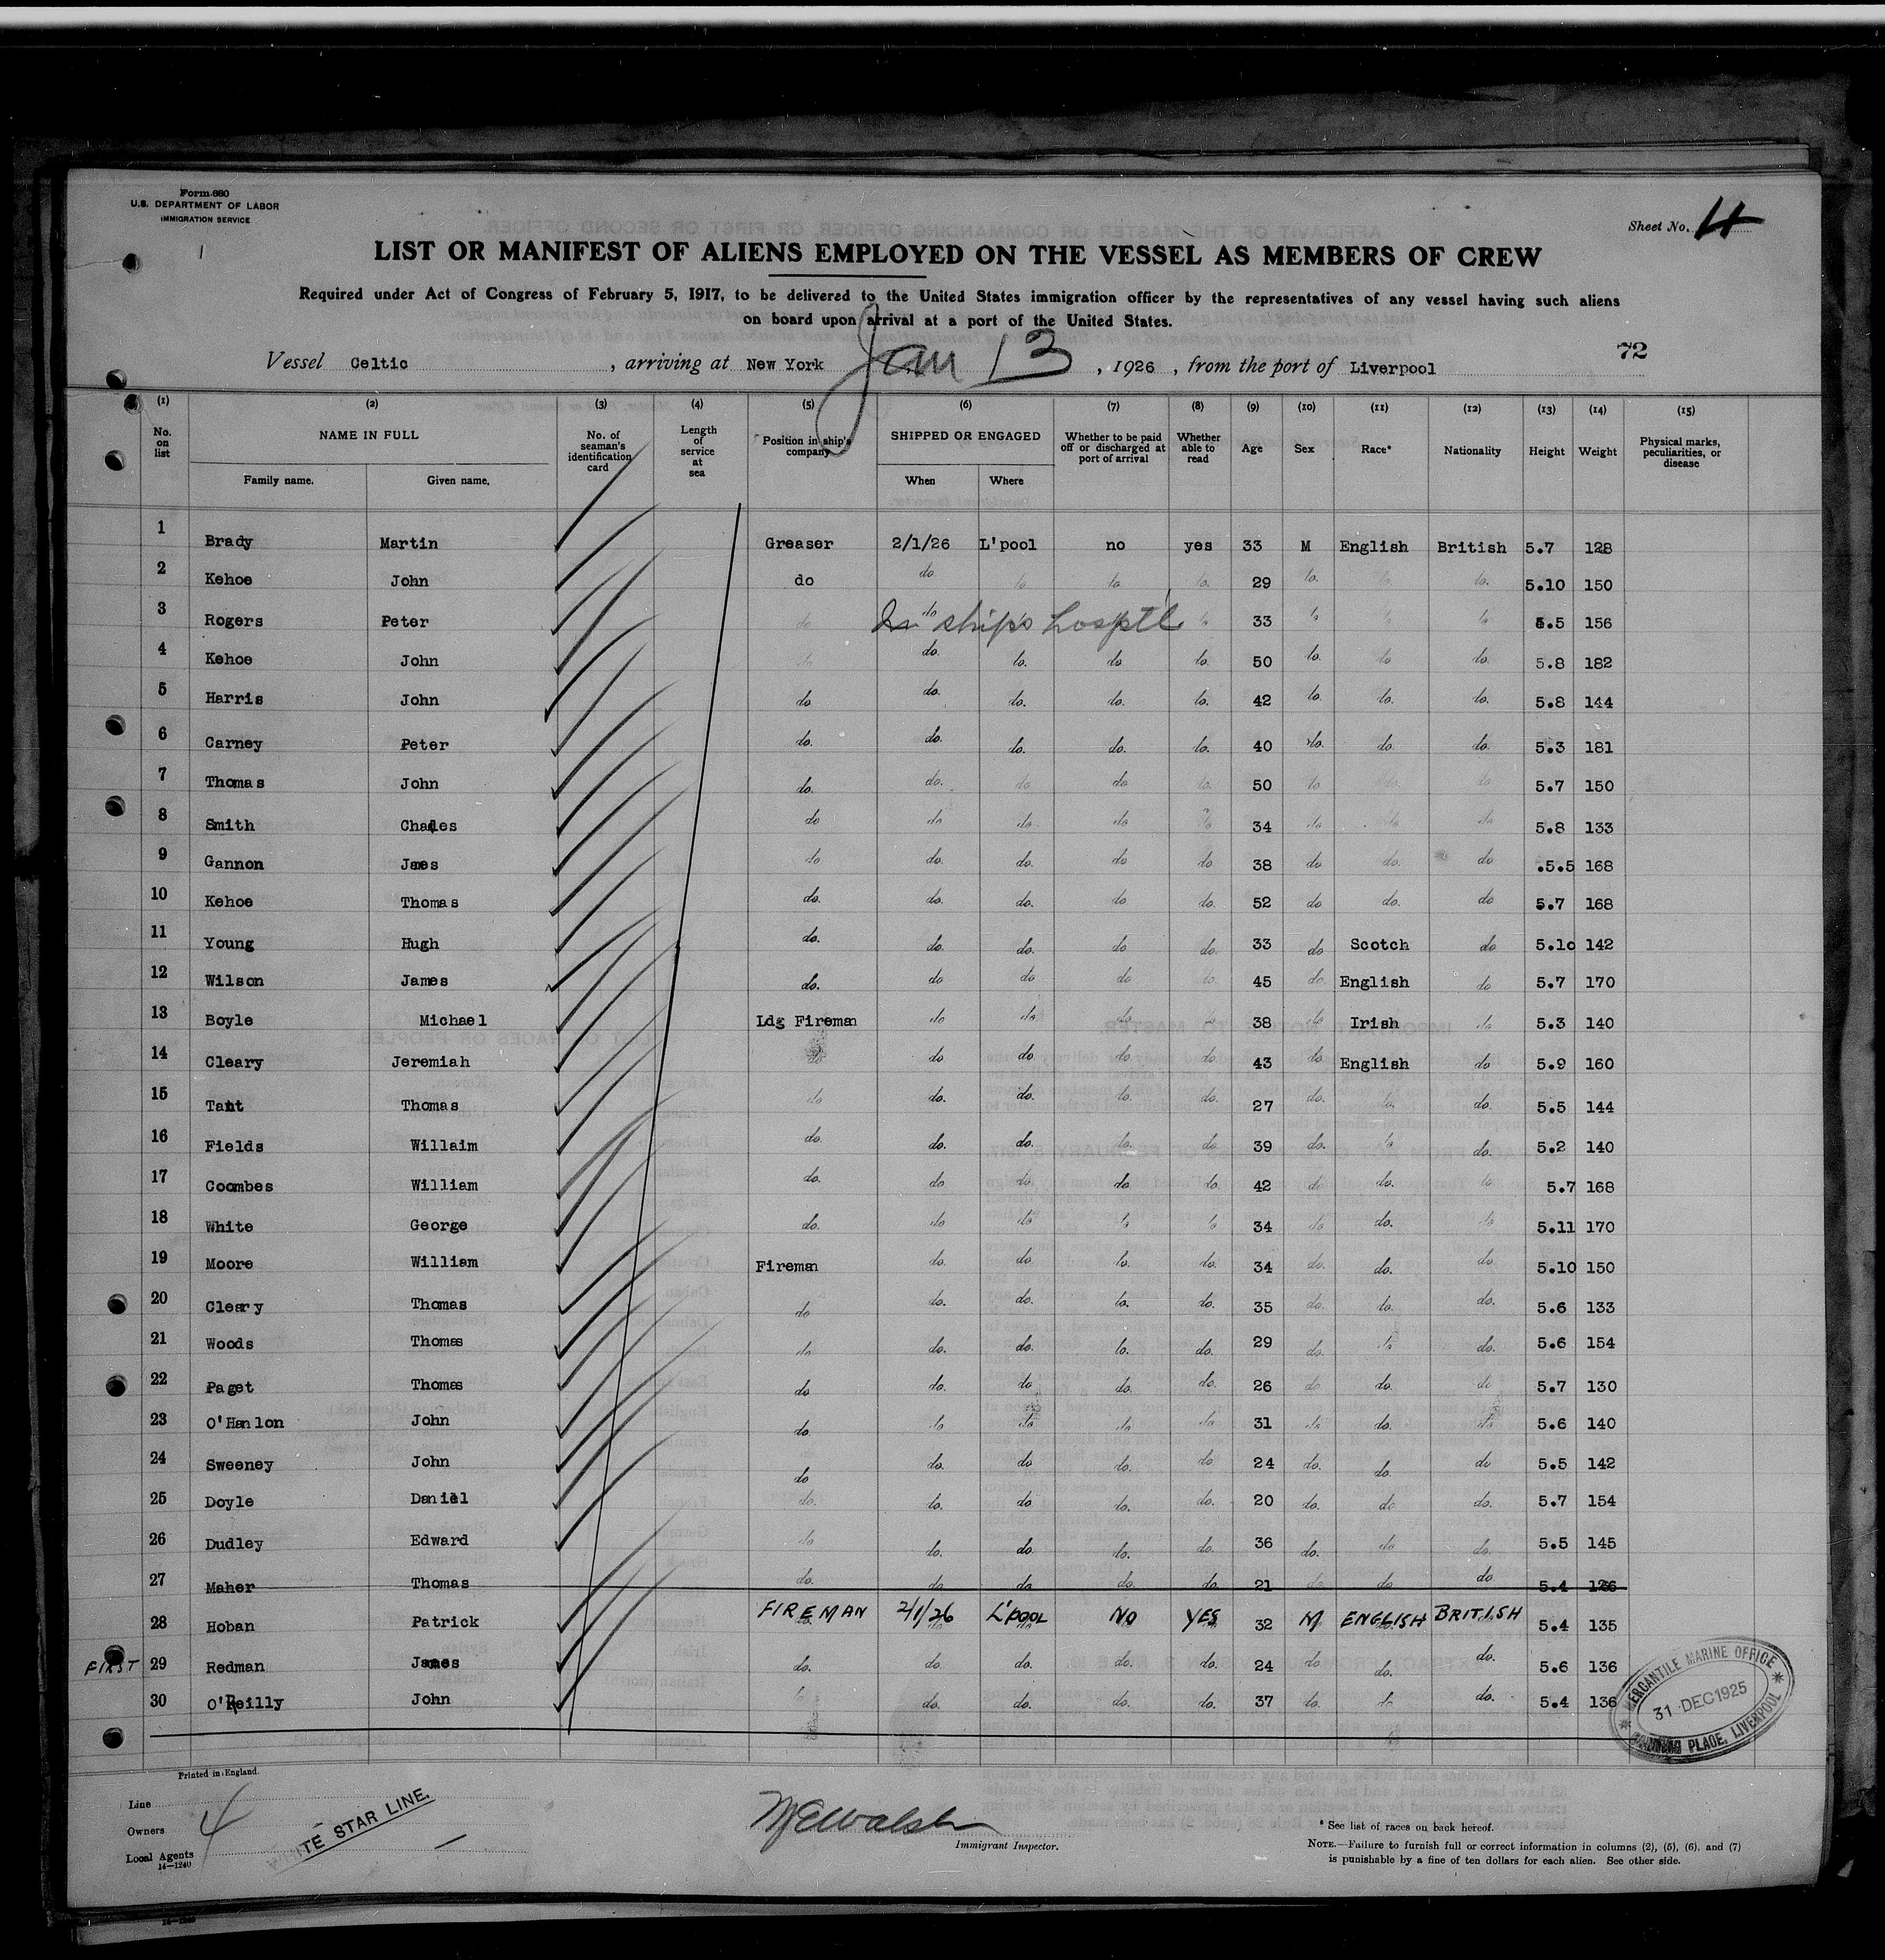 Form 680
U.S. DEPARTMENT OF LABOR
IMMIGRATION SERVICE
Sheet No. 4
LIST OR MANIFEST OF ALIENS EMPLOYED ON THE VESSEL AS MEMBERS OF CREW
Required under Act of Congress of February 5, 1917, to be delivered to the United States immigration officer by the representatives of any vessel having such aliens
on board upon arrival at a port of the United States.
72
Vessel Celtic, arriving at New York Jan 13, 1926, from the port of Liverpool
(1) (2) (3) (4) (5) (6) (7) (8) (9) (10) (11) (12) (13) (14) (15)
No. on list NAME IN FULL No. of seaman's identification card Length of service at sea Position in ship's company SHIPPED OR ENGAGED Whether to be paid off or discharged at port of arrival Whether able to read Age Sex Race* Nationality Height Weight Physical marks, peculiarities, or disease
Family name. Given name. When Where
1 Brady Martin Greaser 2/1/26 L'pool no yes 33 M English British 5.7 128
2 Kehoe John do do do do do 29 do do do 5.10 150
3 Rogers Peter do do In ships hosptl do 33 do do do 5.5 156
4 Kehoe John do do. do. do do. 50 do. do do. 5.8 182
5 Harris John do do. do. do. do. 42 do. do. do. 5.8 144
6 Carney Peter do. do. do. do. do. 40 do. do. do. 5.3 181
7 Thomas John do. do. do do do. 50 do do 5.7 150
8 Smith Charles do do do do do 34 do do do 5.8 133
9 Gannon James do do. do. do do 38 do do. do .5.5 168
10 Kehoe Thomas do. do. do. do do. 52 do do. do 5.7 168
11 Young Hugh do. do. do. do do. 33 do Scotch do 5.10 142
12 Wilson James do. do do do do. 45 do English do 5.7 170
13 Boyle Michael Ldg Fireman do do do do 38 do Irish do 5.3 140
14 Cleary Jeremiah do do do do. do 43 do English do 5.9 160
15 Tant Thomas do do. do. do. do. 27 do. do. do. 5.5 144
16 Fields Willaim do. do. do. do. do 39 do. do do. 5.2 140
17 Coombes William do. do do. do do. 42 do do. do 5.7 168
18 White George do. do do do do 34 do do. do 5.11 170
19 Moore William Fireman do. do. do. do. 34 do. do. do. 5.10 150
20 Cleary Thomas do do. do. do. do. 35 do. do. do. 5.6 133
21 Woods Thomas do do. do. do. do. 29 do. do do. 5.6 154
22 Paget Thomas do do. do do. do. 26 do do. do 5.7 130
23 O'Hanlon John do. do do do do 31 do do. do 5.6 140
24 Sweeney John do do. do do. do. 24 do. do. do 5.5 142
25 Doyle Daniel do. do. do do. do. 20 do. do do. 5.7 154
26 Dudley Edward do do. do do. do. 36 do. do do. 5.5 145
27 Maher Thomas do. do do do do 21 do do do 5.4 126
28 Hoban Patrick FIREMAN 2/1/26 L'POOL NO YES 32 M ENGLISH BRITISH 5.4 135
FIRST 29 Redman James do. do. do. do. do. 24 do do. do. 5.6 136
30 O'Reilly John do do. do. do. do. 37 do. do. do. 5.4 136
MERCANTILE MARINE OFFICE
31 DEC 1925
PLACE, LIVERPOOL
Printed in England.
Line
Owners 4
Local Agents
14-1240
WHITE STAR LINE.
Immigrant Inspector.
* See list of races on back hereof.
NOTE.—Failure to furnish full or correct information in columns (2), (5), (6), and (7)
is punishable by a fine of ten dollars for each alien. See other side.